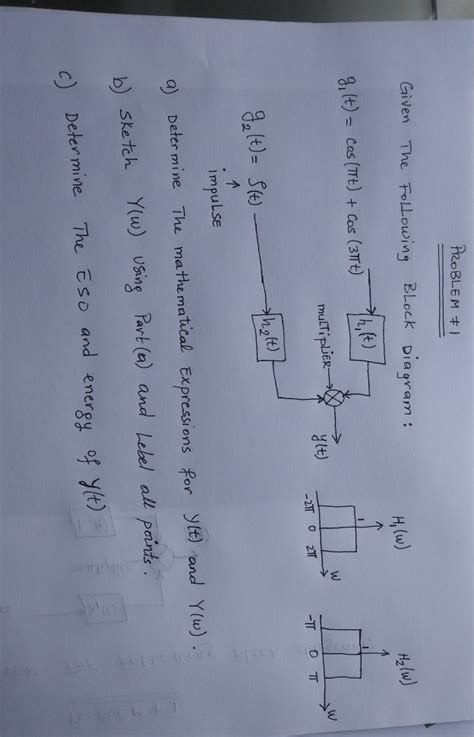 PROBLEM #1
Given The Following Block Diagram:
g₁(t) = cos(πt) + cos(3πt)
h₁(t)
multiplier
y(t)
g₂(t) = δ(t)
impulse
h₂(t)
H₁(w)
1
-2π 0 2π w
H₂(w)
1
-π 0 π w
a) Determine The mathematical Expressions for y(t) and Y(w).
b) Sketch Y(w) using Part(a) and Label all points.
c) Determine The ESD and energy of y(t)